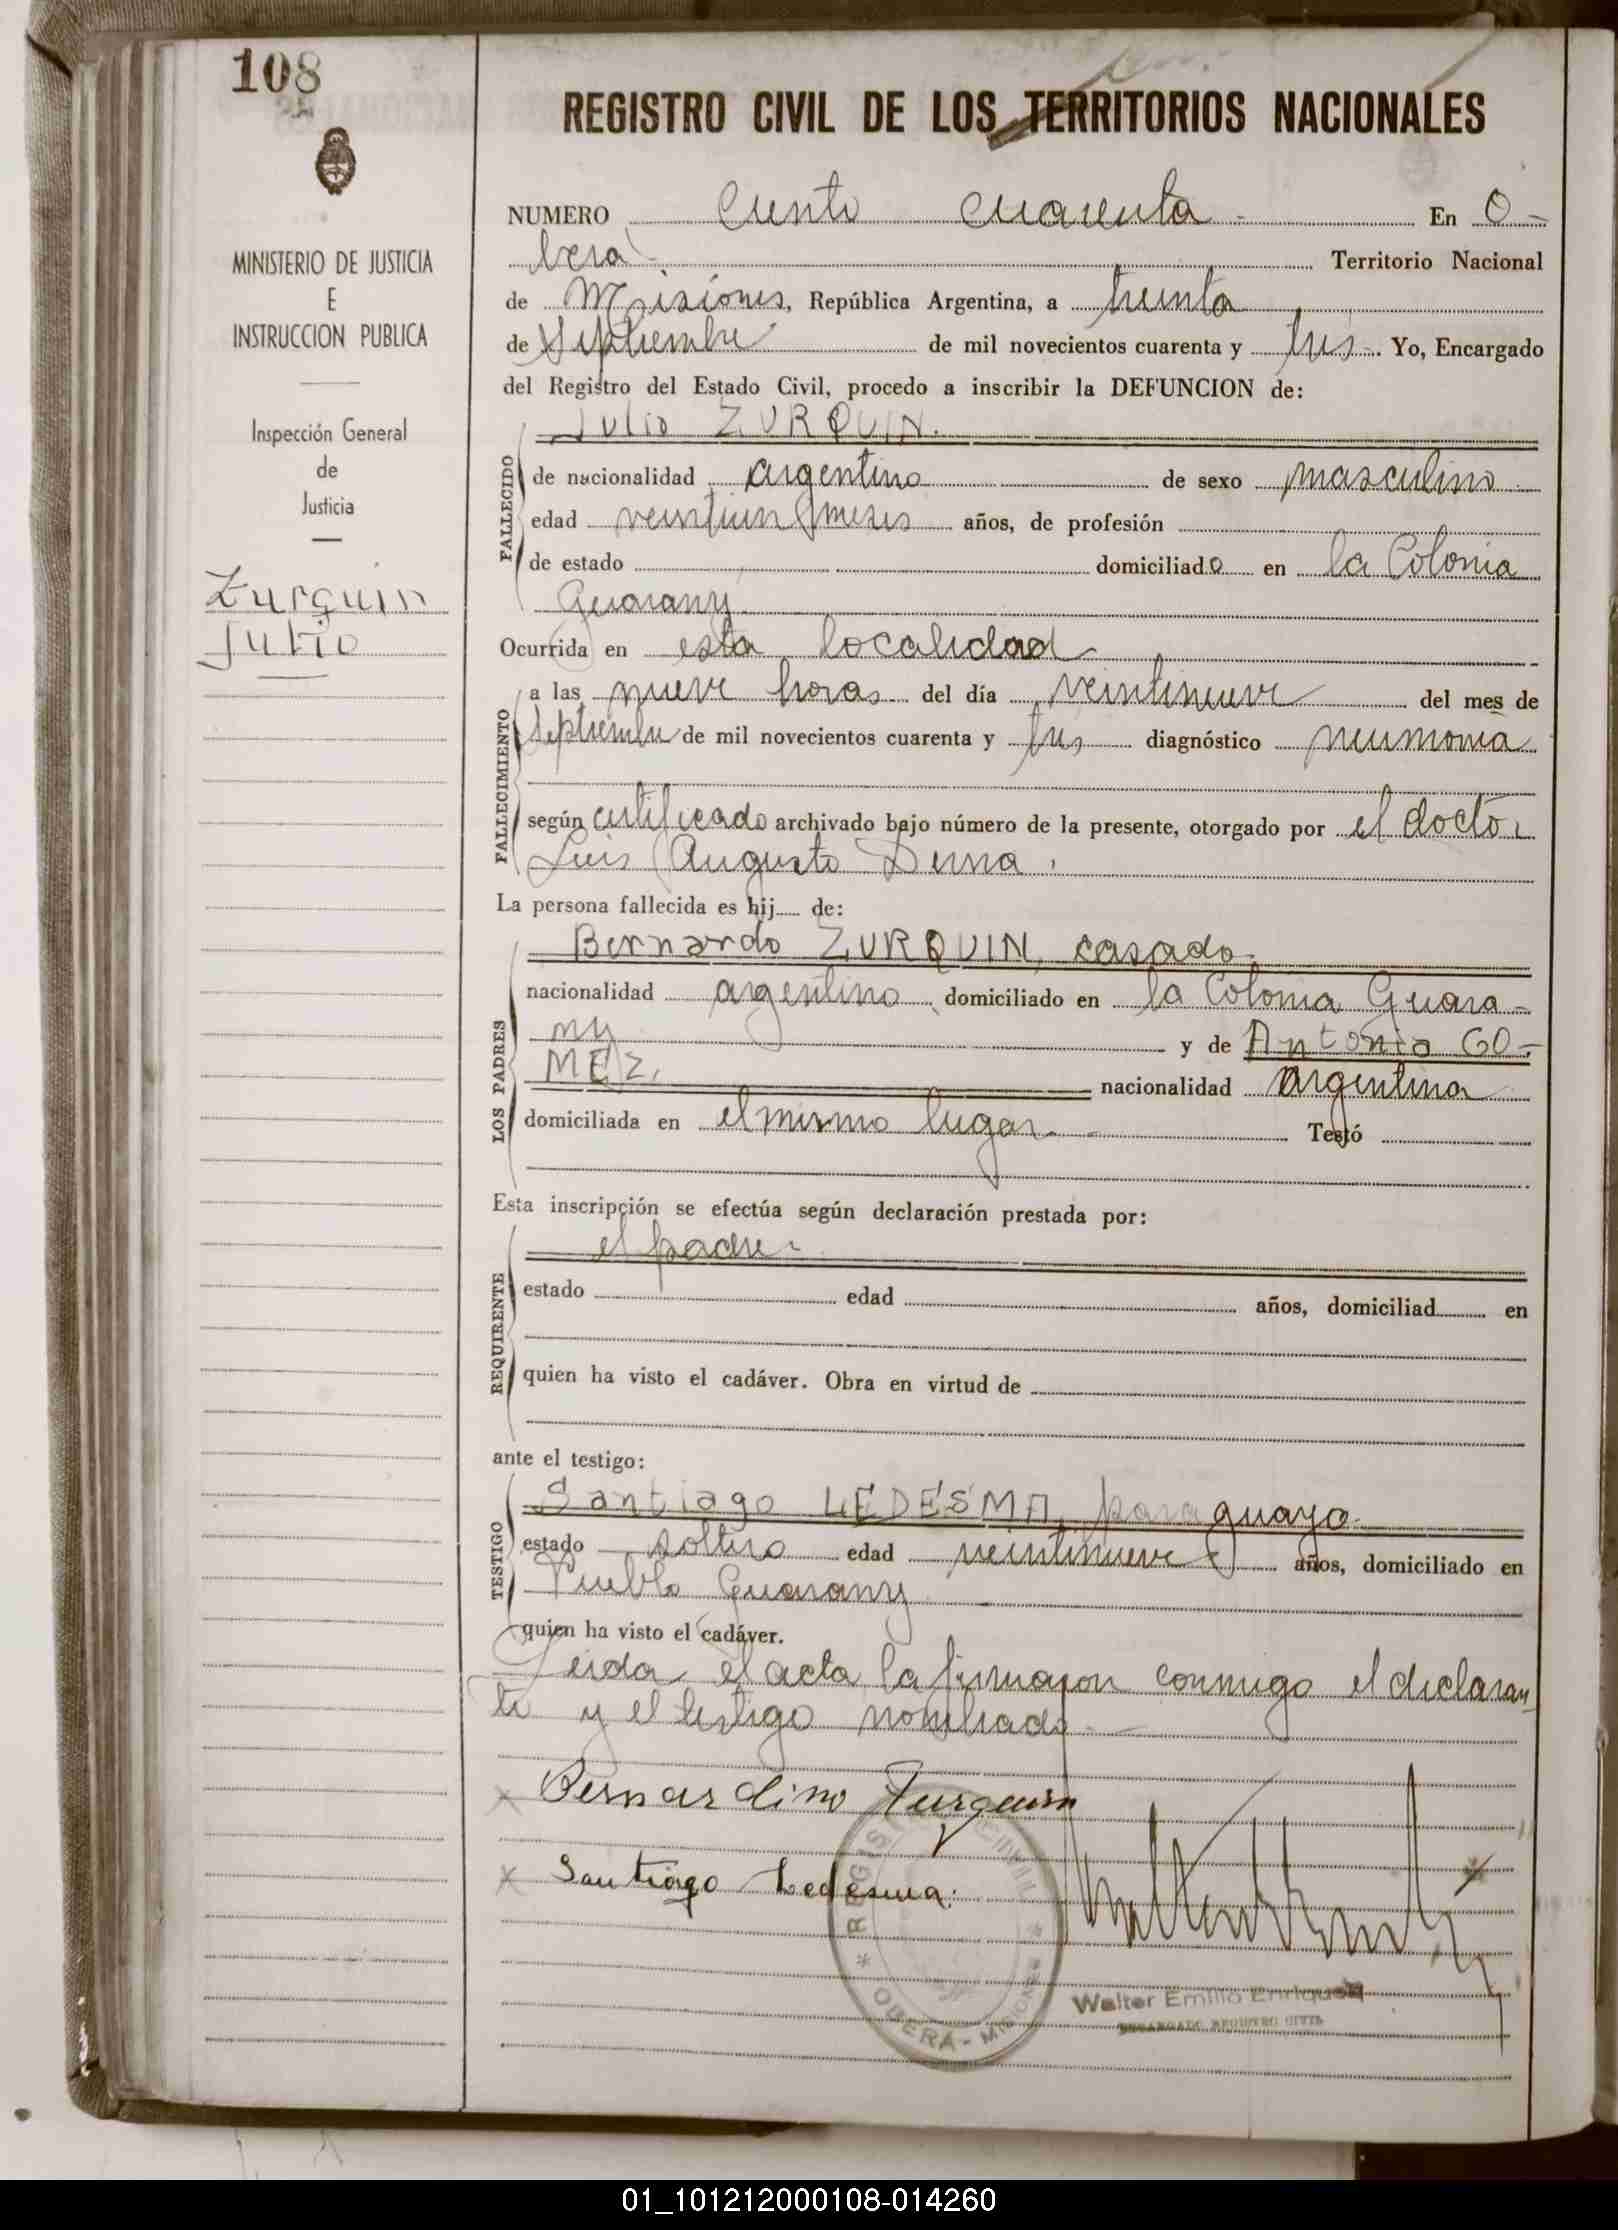 108
REGISTRO CIVIL DE LOS TERRITORIOS NACIONALES
MINISTERIO DE JUSTICIA
E
INSTRUCCION PUBLICA
Inspección General
de
Justicia
Zurquin
Julio
NUMERO Ciento cuarenta - En O-
berá Territorio Nacional
de Misiones, República Argentina, a treinta
de Septiembre de mil novecientos cuarenta y tres Yo, Encargado
del Registro del Estado Civil, procedo a inscribir la DEFUNCION de:
Julio ZURQUIN.
FALLECIDO
de nacionalidad argentino de sexo masculino
edad veintiun meses años, de profesión
de estado domiciliado en la Colonia
Guarany
Ocurrida en esta localidad
FALLECIMIENTO
a las nueve horas del día veintinueve del mes de
Septiembre de mil novecientos cuarenta y tres diagnóstico neumonia
según certificado archivado bajo número de la presente, otorgado por el doctor
Luis Augusto
La persona fallecida es hij de:
LOS PADRES
Bernardo ZURQUIN, casado
nacionalidad argentino, domiciliado en la Colonia Guara-
ny y de Antonia GO-
MEZ, nacionalidad argentina
domiciliada en el mismo lugar Testó
Esta inscripción se efectúa según declaración prestada por:
REQUIRENTE
el padre
estado edad años, domiciliad en
quien ha visto el cadáver. Obra en virtud de
ante el testigo:
TESTIGO
Santiago LEDESMA, paraguayo
estado soltero edad veintinueve años, domiciliado en
Pueblo Guarany
quien ha visto el cadáver.
Leida el acta la firmaron conmigo el declaran
te y el testigo nombrado
Bernardino Zurquin
Santiago Ledesma.
REGISTRO CIVIL
* OBERA - MISIONES *
Walter Emilio Enriquez
ENCARGADO REGISTRO CIVIL
01_101212000108-014260